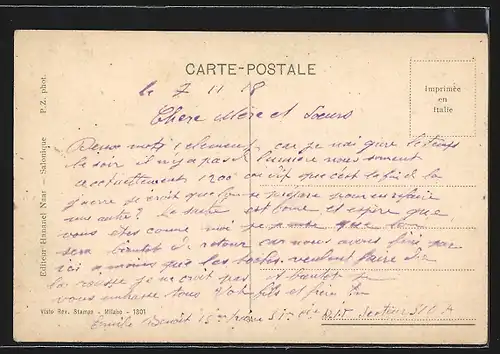 CARTE-POSTALE
Imprimée
en
Italie
le 7 11 18
Chere Mère et Soeurs
Deux mots seulement car je n'ai guère le temps
le soir il n'y a pas de lumière nous sommes
actuellement 1200 on dit que c'est la fin de la
guerre je croit que l'on se prépare pour en refaire
une autre? La santé est bonne et espère que
vous êtes comme moi je pense que l'on
sera bientôt de retour car nous avons fini par
ici a moins que les boches veulent faire
la je ne croit pas A bientôt je
vous embrasse tous Votre fils et frère
Emile Benoit Secteur 510 A
Editeur Hananel Naar — Salonique P.Z. phot.
Visto Rev. Stampa - Milano - 1301